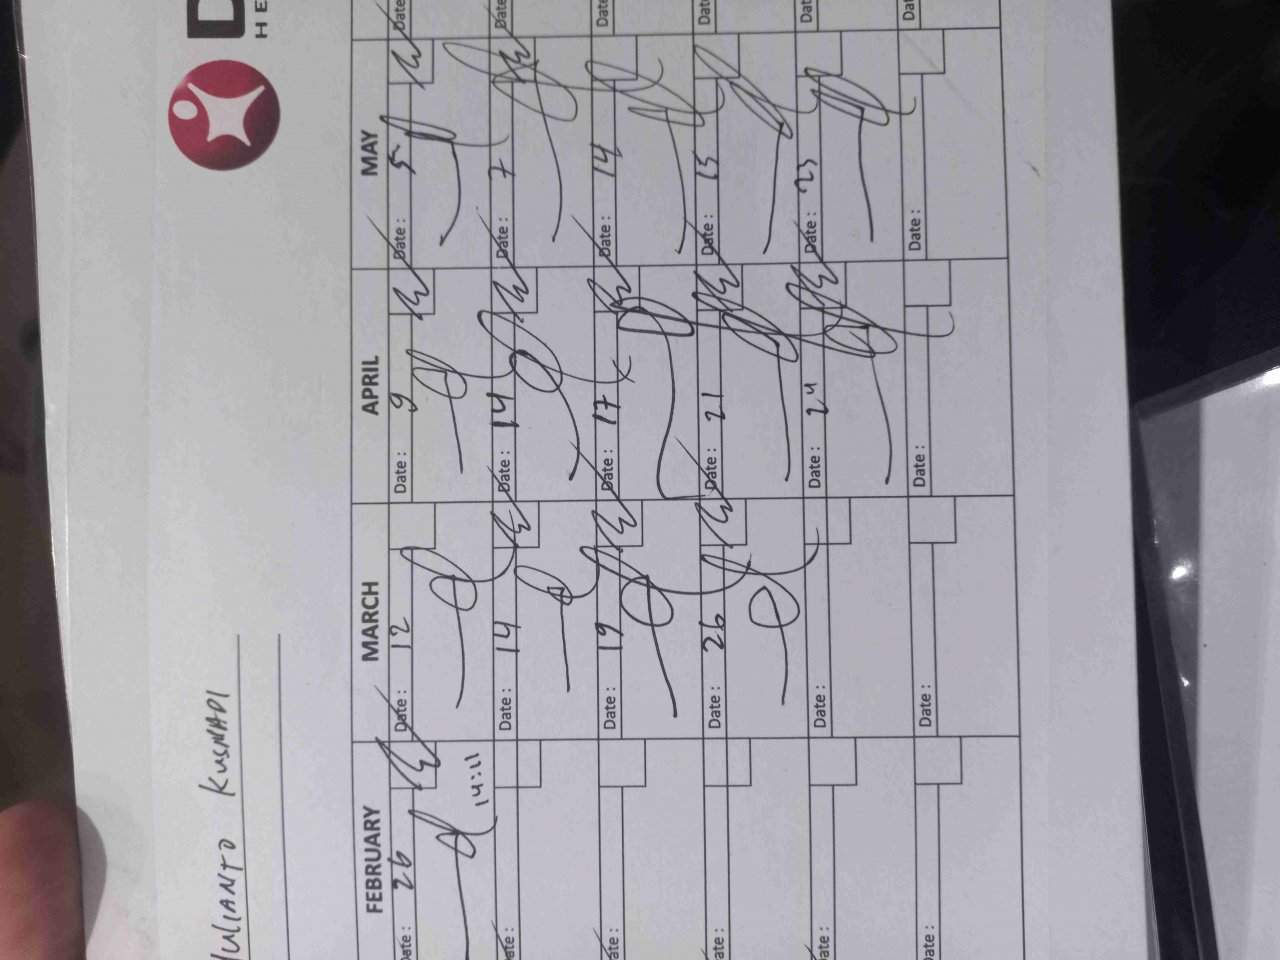 D
HE
YULIANTO KUSMADI
FEBRUARY MARCH APRIL MAY
Date : 26 Date : 12 Date : 9 Date : 5 Date
14:11
ate : Date : 14 Date : 14 Date : 7 Date
ate : Date : 19 Date : 17 Date : 14 Date
ate : Date : 26 Date : 21 Date : 15 Date
Date : Date : Date : 24 Date : 23 Dat
Date : Date : Date : Date : Dat